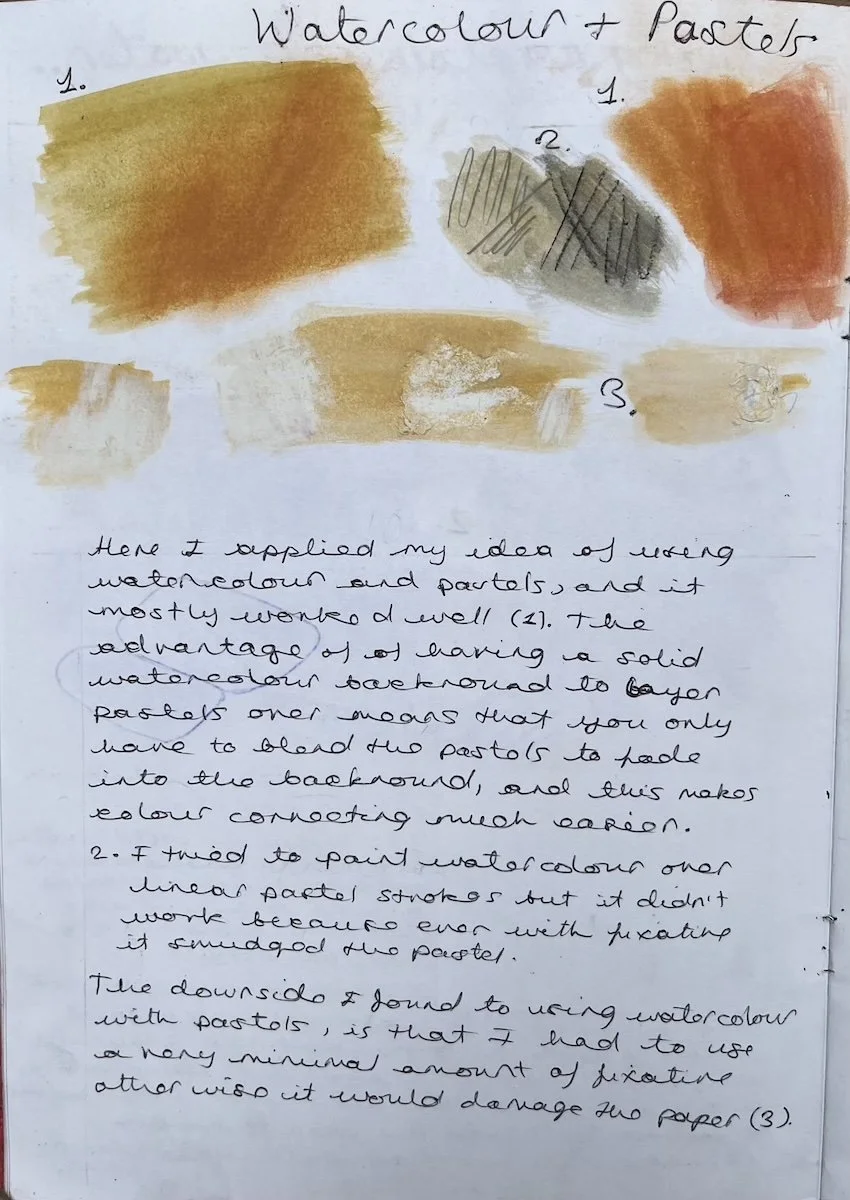 Watercolour + Pastels
1.
1.
2.
3.
Here I applied my idea of using
watercolour and pastels, and it
mostly worked well (1). The
advantage of of having a solid
watercolour background to layer
pastels over means that you only
have to blend the pastels to fade
into the background, and this makes
colour connecting much easier.
2. I tried to paint watercolour over
linear pastel strokes but it didn't
work because even with fixative
it smudged the pastel.
The downside I found to using watercolour
with pastels, is that I had to use
a very minimal amount of fixative
otherwise it would damage the paper (3).